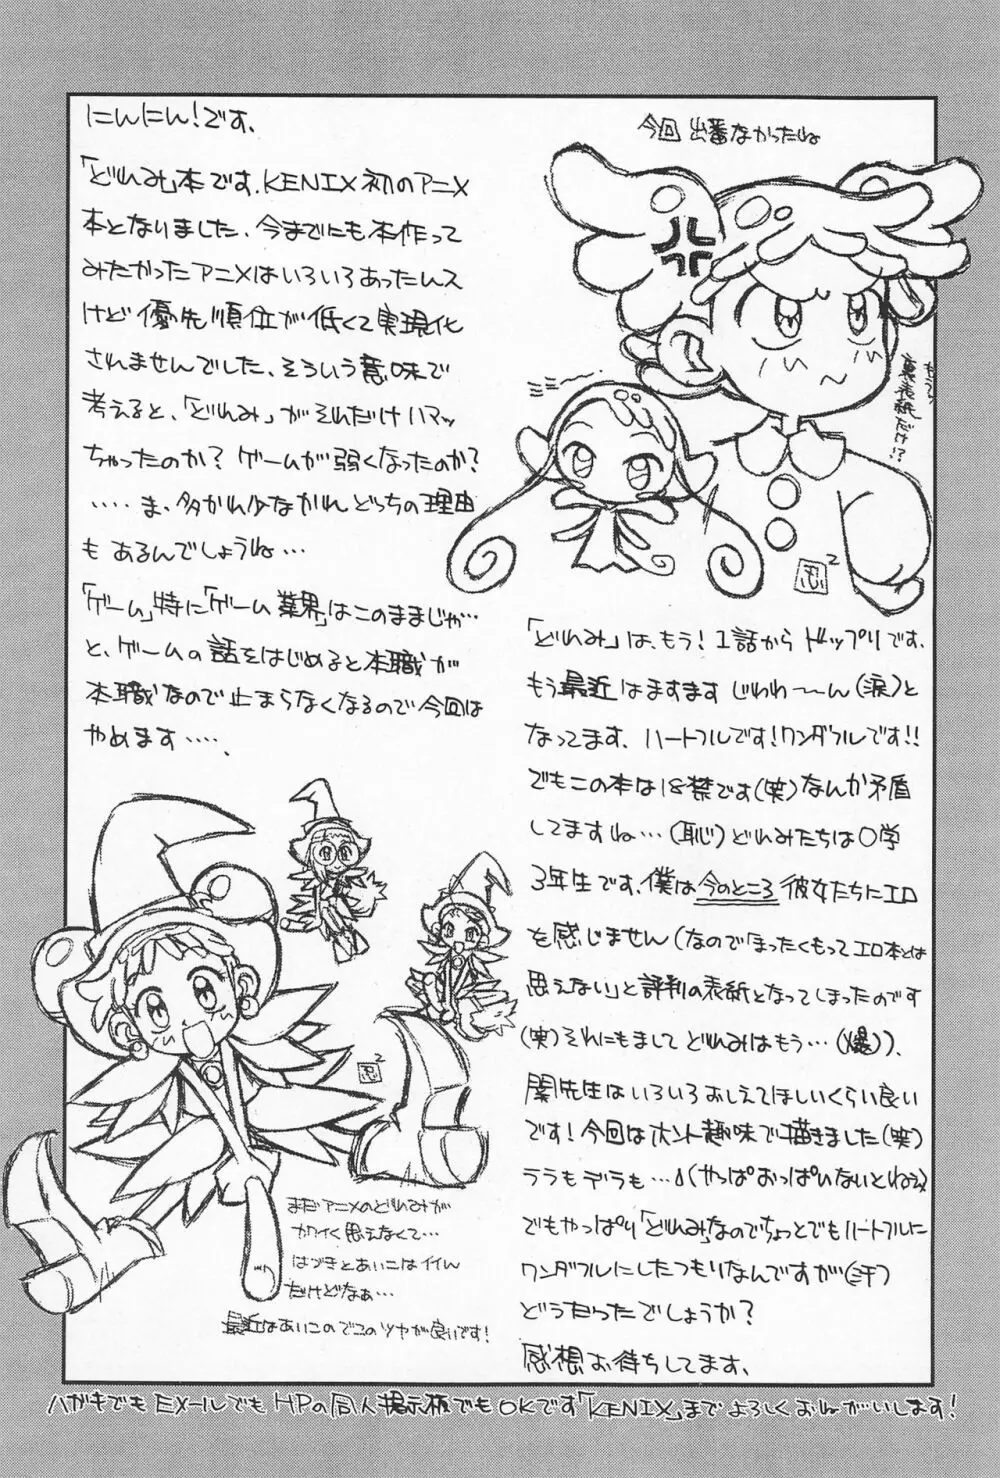 にんにん!です、
「どれみ」本です、KENIX初のアニメ
本となりました、今までにも本作って
みたかったアニメはいろいろあったんス
けど優先順位が低くて実現化
されませんでした、そういう意味で
考えると、「どれみ」がそれだけハマッ
ちゃったのか?ゲームが弱くなったのか?
‥‥ま、多かれ少なかれどっちの理由
もあるんでしょうね…
「ゲーム」特に「ゲーム業界」はこのままじゃ…
と、ゲームの話をはじめると本職が
本職なので止まらなくなるので今回は
やめます‥‥、
今回出番なかったね
もうっ
裏表紙だけ!?
「どれみ」は、もう!1話からドップリです、
もう最近はますますじわわ〜ん(涙)と
なってます、ハートフルです!ワンダフルです!!
でもこの本は18禁です(笑)なんか矛盾
してますね…(恥)どれみたちは〇学
3年生です、僕は今のところ彼女たちにエロ
を感じません(なので「まったくもってエロ本とは
思えない」と評判の表紙となってしまったのです
(笑)それにもましてどれみはもう…(爆))、
関先生はいろいろおしえてほしいくらい良い
です!今回はホント趣味で描きました(笑)
ララもデラも…(やっぱおっぱいないとねぇ)
でもやっぱり「どれみ」なのでちょっとでもハートフルに
ワンダフルにしたつもりなんですが(汗)
どうだったでしょうか?
感想お待ちしてます、
まだアニメのどれみが
カワイく思えなくて…
はづきとあいこはイイん
だけどなぁ…
最近はあいこのでこのツヤが良いです!
ハガキでもEメールでもHPの同人掲示板でもOKです「KENIX」までよろしくおねがいします!